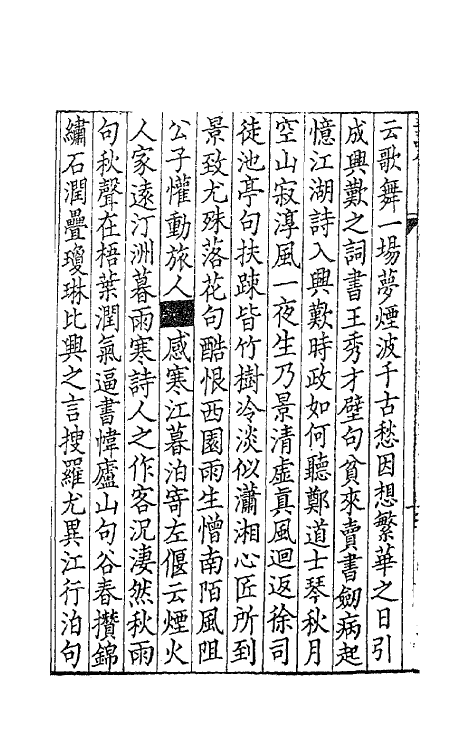 云歌舞一場夢煙波千古愁因想繁華之日引
成興歎之詞書王秀才壁句貧來賣書劒病起
憶江湖詩入興歎時政如何聽鄭道士琴秋月
空山寂淳風一夜生乃景清虛真風迴返徐司
徒池亭句扶踈皆竹樹冷淡似瀟湘心匠所到
景致尤殊落花句酷恨西園雨生憎南陌風阻
公子懽動旅人感寒江暮泊寄左偃云煙火
人家遠汀洲暮雨寒詩人之作客況淒然秋雨
句秋聲在梧葉潤氣逼書幃廬山句谷春攢錦
繡石潤疊瓊琳比興之言搜羅尤異江行泊句